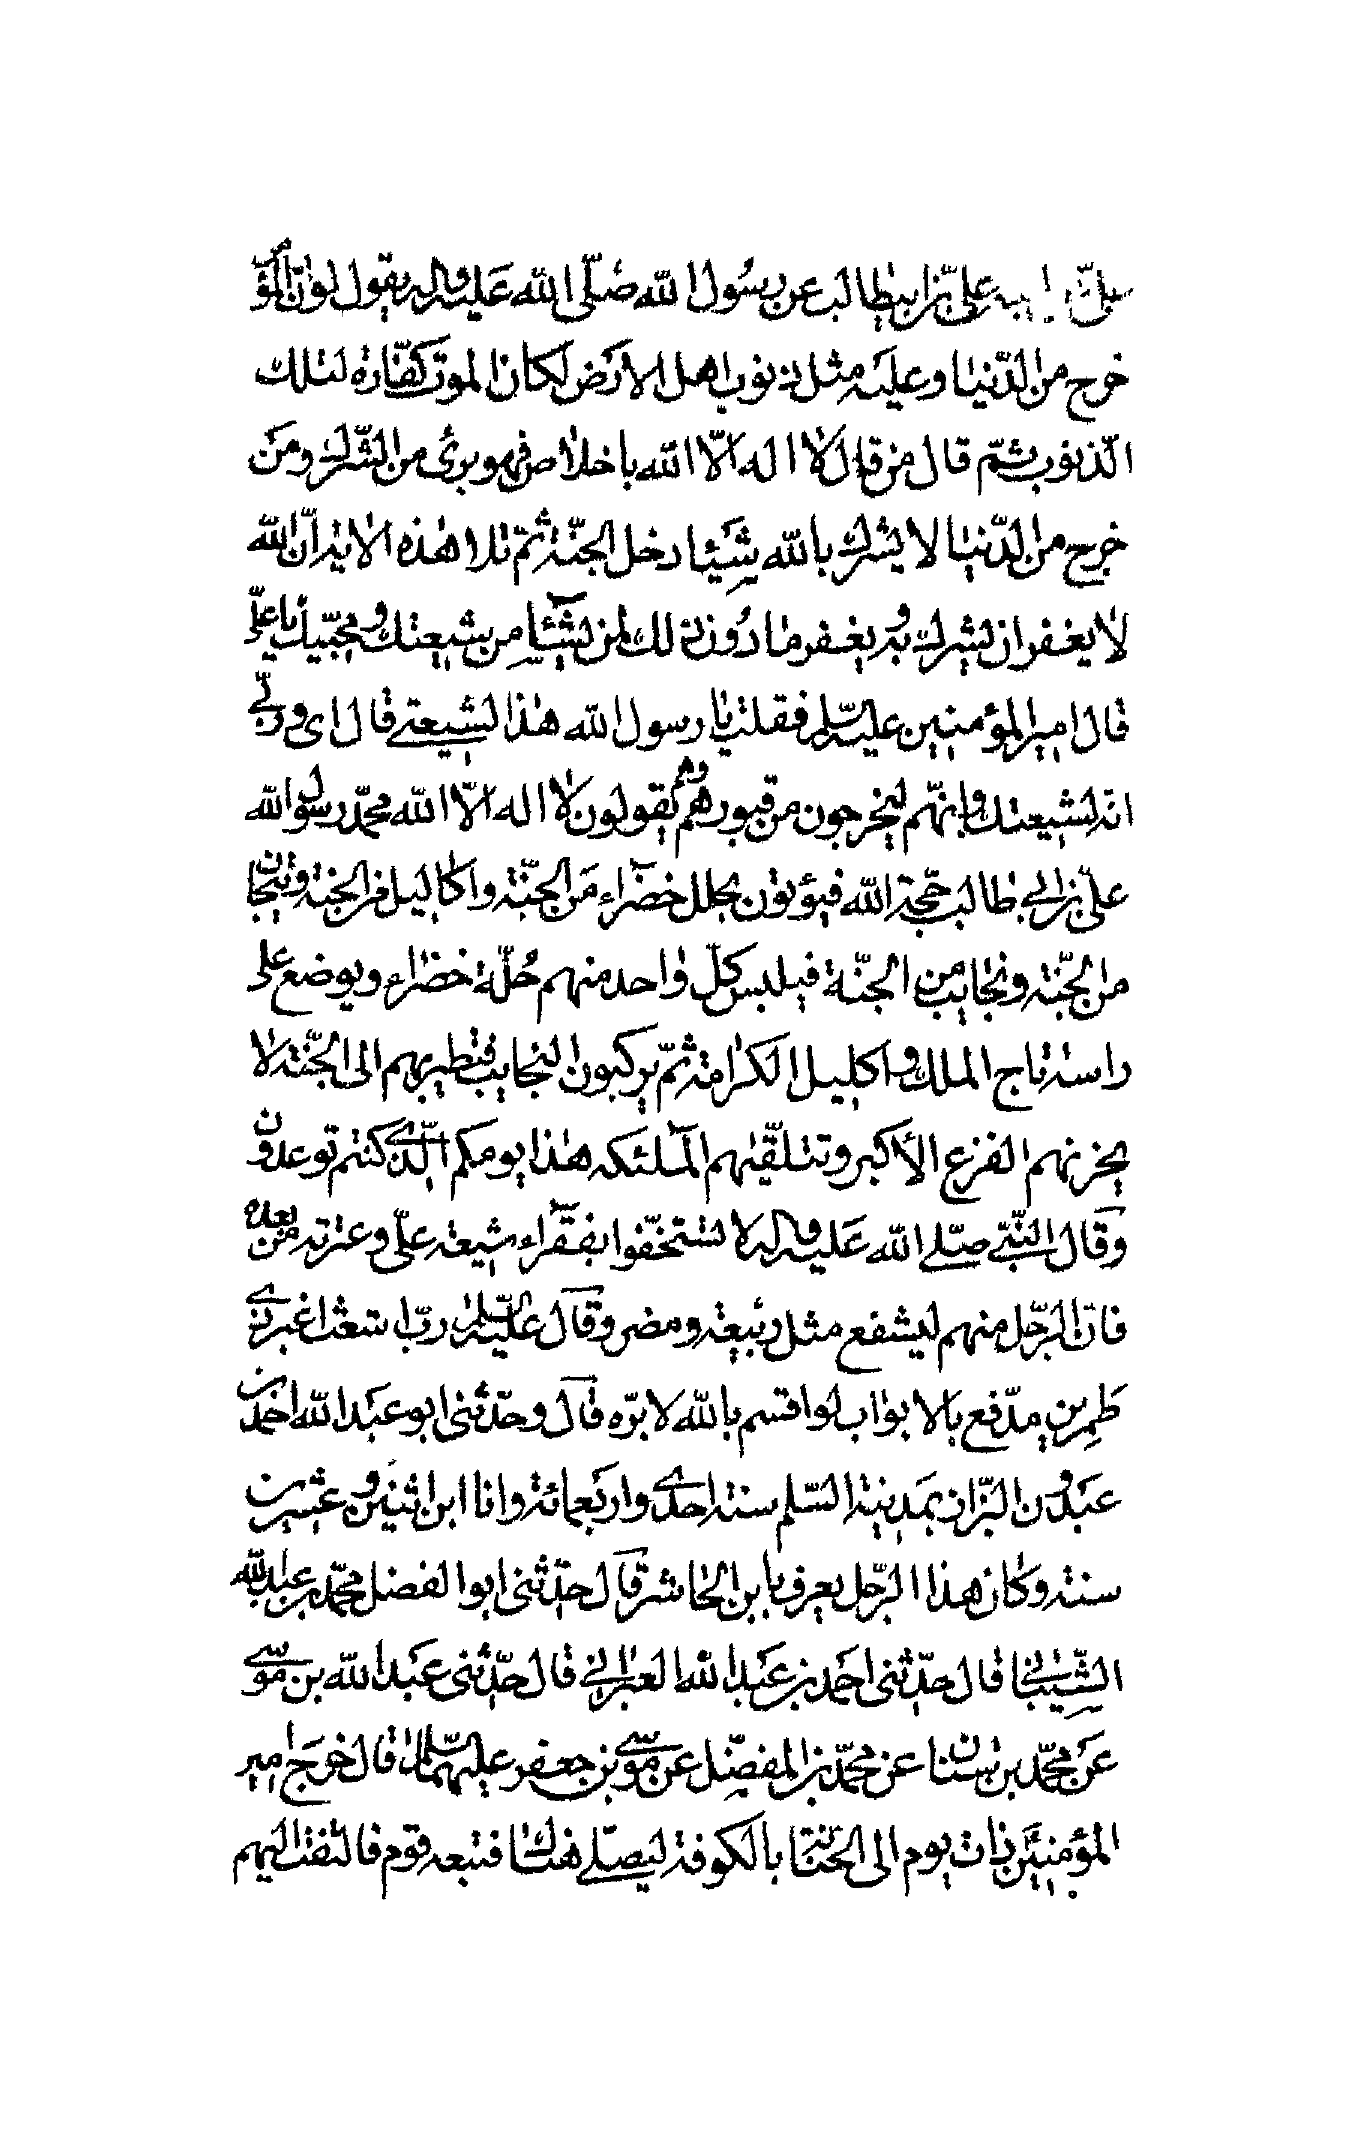 علي بن ابيطالب عن رسول الله صلّى الله عليه واله يقول لو انّ المؤمن
خرج من الدّنيا وعليه مثل ذنوب اهل الارض لكان الموت كفّارة لتلك
الّذنوب ثمّ قال من قال لا اله الاّ الله باخلاص فهو برئ من الشّرك ومن
خرج من الدّنيا لا يشرك بالله شيئا دخل الجنّة ثمّ تلا هذه الاية انّ الله
لا يغفر ان يشرك به ويغفر ما دون ذلك لمن يشآء من شيعتك ومحبّيك يا علي
قال امير المؤمنين عليه السّلم فقلت يا رسول الله هذا لشيعتي قال اى وربّي
انّه لشيعتك وانّهم ليخرجون من قبورهم وهم يقولون لا اله الاّ الله محمّد رسول الله
علىّ بن ابي طالب حجّة الله فيؤتون بحلل خضراء من الجنّة واكاليل من الجنة وتيجان
من الجنّة ونجايب من الجنّة فيلبس كلّ واحد منهم حُلّة خضراء ويوضع على
راسه تاج الملك واكليل الكرامة ثمّ يركبون النجايب فتطير بهم الى الجنّة لا
يحزنهم الفزع الأكبر وتتلقّيهم الملئكه هذا يومكم الّذي كنتم توعدون
وقال النبّي صلّى الله عليه واله لا تستخفّوا بفقراء شيعة علىّ وعترته من بعده
فانّ الرّجل منهم ليشفع مثل ربيعة ومضر وقال عليه السّلم ربّ اشعث اغبر ذي
طمرين مدّفع بالابواب لو اقسم بالله لابرّه قال وحدّثنى ابو عبد الله احمد بن
عبدون البزّاز بمدينة السّلم سنة احدي واربعمائة وانا ابن اثنين وعشرين
سنة وكان هذا الرّجل يعرف بابن الحاشر قال حدّثنى ابو الفضل محمّد بن عبد الله
الشّيباني قال حدّثنى احمد بن عبد الله العبراني قال حدّثنى عبد الله بن موسى
عن محمّد بن سنان عن محمّد بن المفضّل عن موسى بن جعفر عليهما السّلم قال خرج امير
المؤمنين ذات يوم الى الجبّانة بالكوفة ليصلّي هناك فتبعه قوم فالتفت اليهم